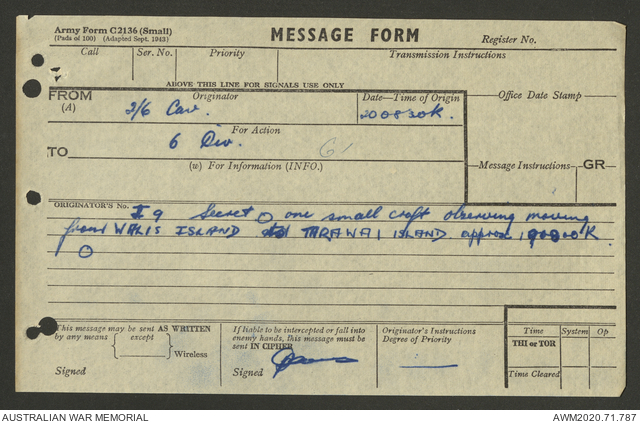 Army Form C2136 (Small)
(Pads of 100) (Adapted Sept. 1943)
MESSAGE FORM
Register No.
Call Ser. No. Priority Transmission Instructions
ABOVE THIS LINE FOR SIGNALS USE ONLY
FROM (A) Originator Date—Time of Origin Office Date Stamp
2/6 Cav. 200830K.
For Action
TO 6 Div. G1
(w) For Information (INFO.) Message Instructions GR
ORIGINATOR'S No. I 9 Secret O one small craft observing moving
from WALIS ISLAND to TARAWAI ISLAND approx K
O
This message may be sent AS WRITTEN
by any means except
Wireless
Signed
If liable to be intercepted or fall into
enemy hands, this message must be
sent IN CIPHER
Signed
Originator's Instructions
Degree of Priority
Time System Op
THI or TOR
Time Cleared
AUSTRALIAN WAR MEMORIAL AWM2020.71.787